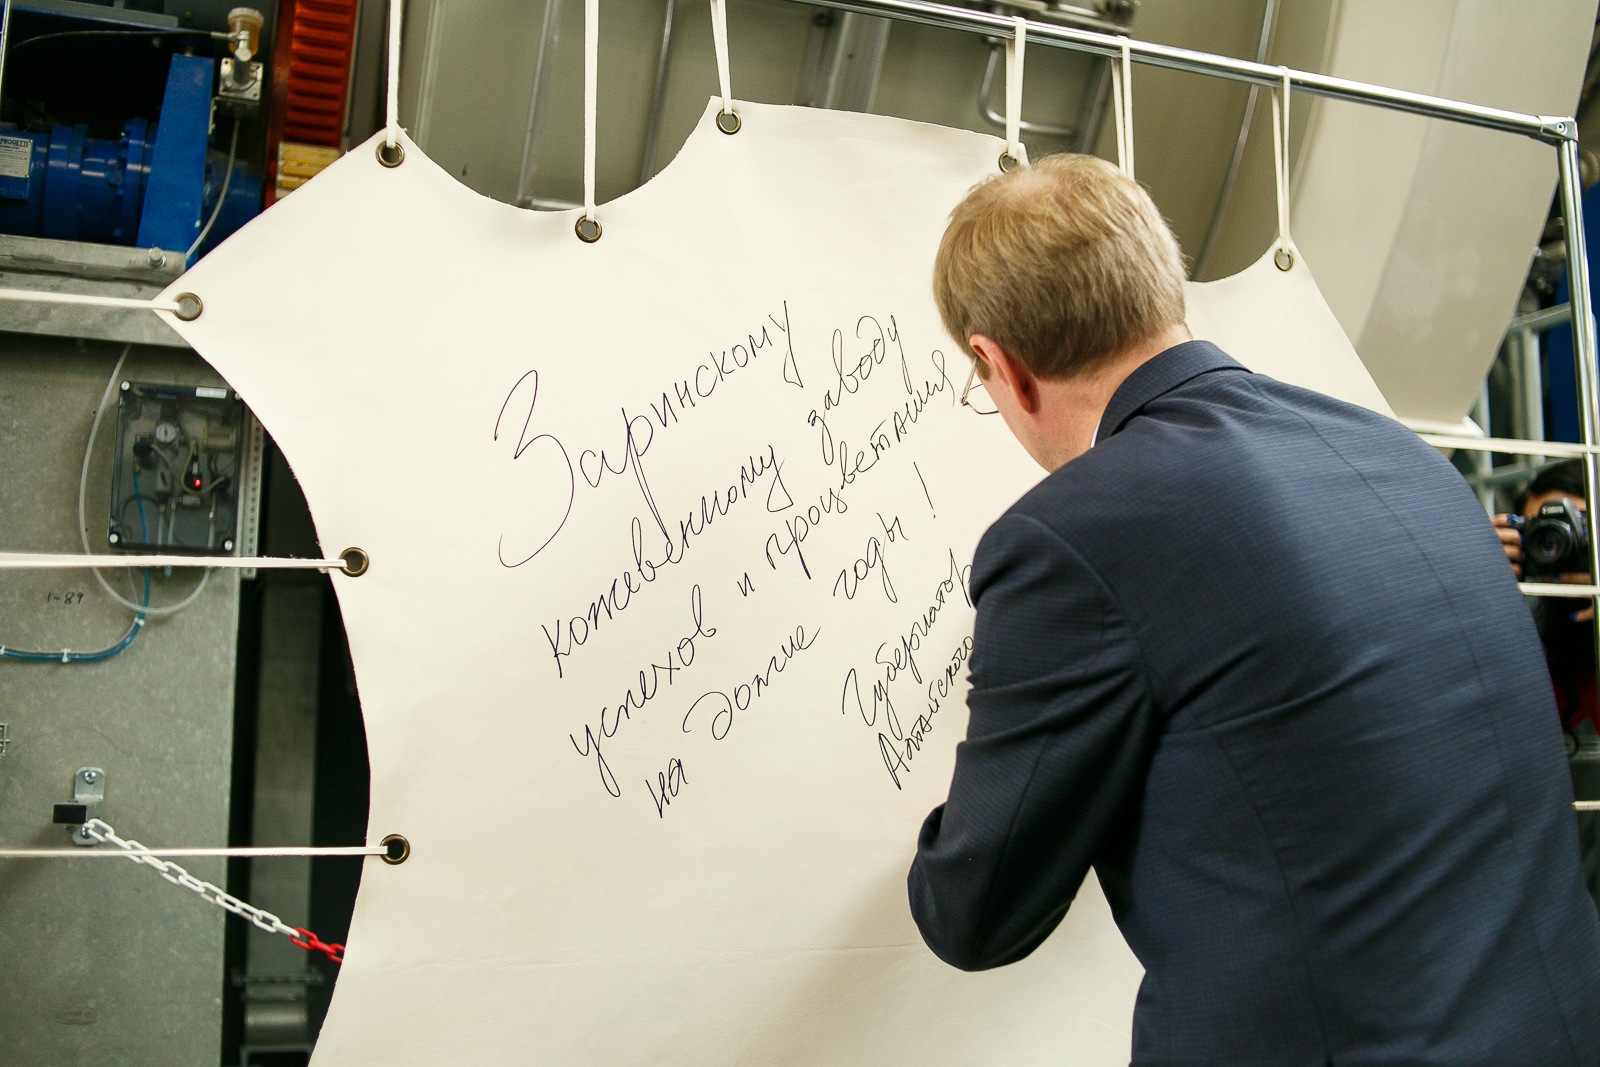 Заринскому
кожевенному заводу
успехов и процветания
на долгие годы!
Губернатор
Алтайского
1-89
PROGETTI
Canon